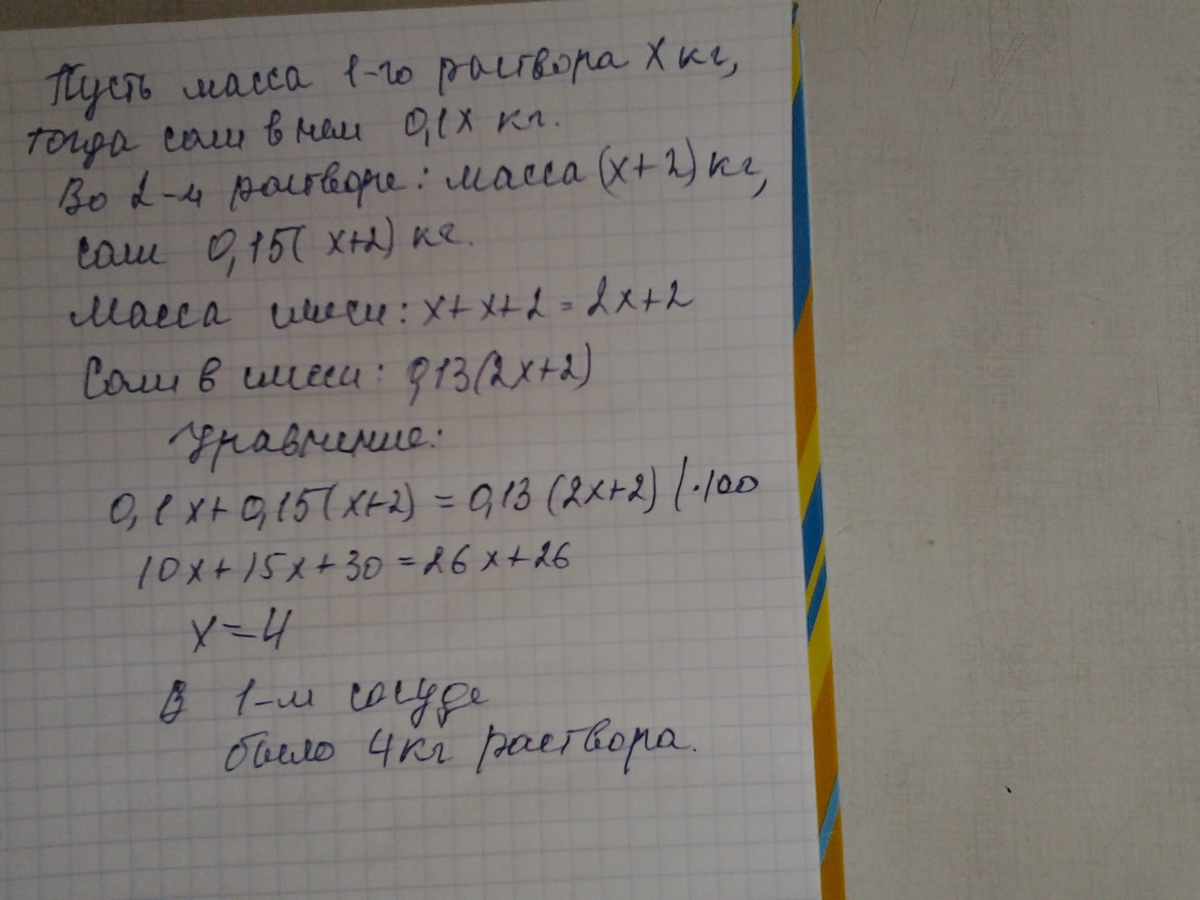 Пусть масса 1-го раствора х кг,
тогда соли в нем 0,1х кг.
Во 2-м растворе: масса (х+2) кг,
соли 0,15(х+2) кг.
Масса смеси: х+х+2=2х+2
Соли в смеси: 0,13(2х+2)
Уравнение:
0,1х+0,15(х+2)=0,13(2х+2) |·100
10х+15х+30=26х+26
х=4
В 1-м сосуде
было 4кг раствора.